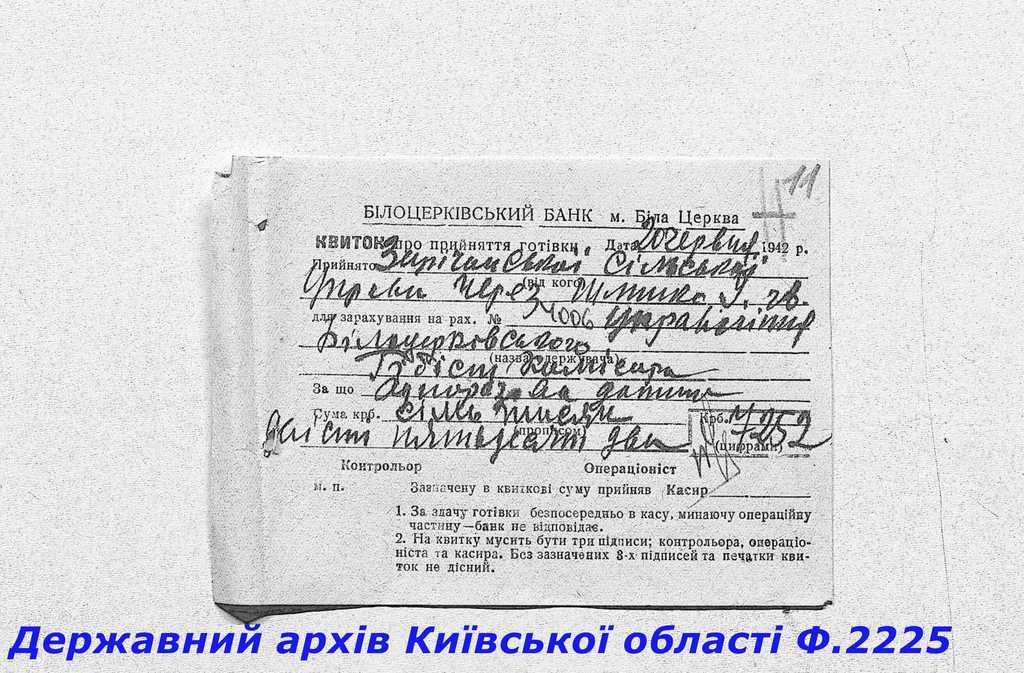 11
БІЛОЦЕРКІВСЬКИЙ БАНК м. Біла Церква
КВИТОК про прийняття готівки Дата 20 червня 1942 р.
Прийнято Зарічанської Сільської
(від кого)
Управи через
для зарахування на рах. № 4006 управління
Білоцерковського
(назва одержувача)
Комісара
За що
Сума крб. сім тисяч Крб. 7252
(прописом) (цифрами)
двісті пятьдесят два
Контрольор Операціоніст
м. п. Зазначену в квиткові суму прийняв Касир
1. За здачу готівки безпосередньо в касу, минаючу операційну
частину—банк не відповідає.
2. На квитку мусить бути три підписи; контрольора, операціо-
ніста та касира. Без зазначених 3-х підписей та печатки кви-
ток не дісний.
Державний архів Київської області Ф.2225